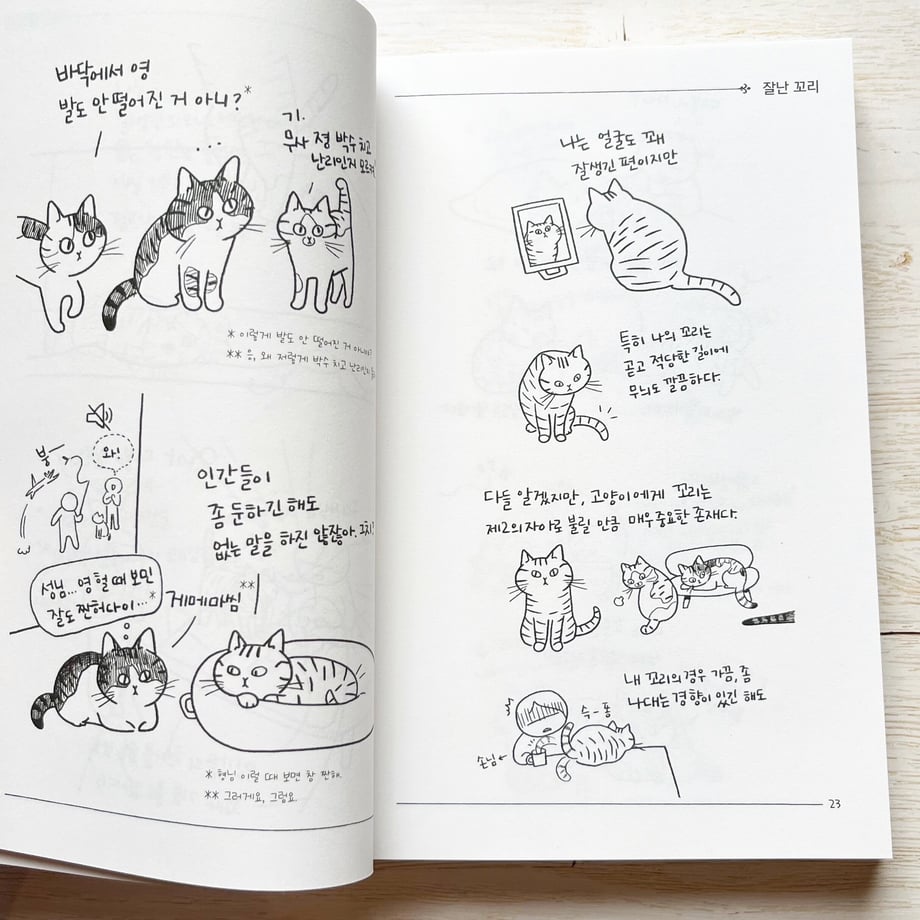 바닥에서 영
발도 안 떨어진 거 아니?*
...
기.
무사 졍 박수 치고
난리인지 모르
* 이렇게 발도 안 떨어진 거 아니에요?
** 음, 왜 저렇게 박수 치고 난리인지
붕—
와!
인간들이
좀 둔하긴 해도
없는 말을 하진 않잖아. 그치?
성님... 영 헐 때 보민
잘도 짠허다이...*
게메마씸**
* 형님 이럴 때 보면 참 짠해.
** 그러게요, 그럼요.
잘난 꼬리
나는 얼굴도 꽤
잘생긴 편이지만
특히 나의 꼬리는
곧고 적당한 길이에
무늬도 깔끔하다.
다들 알겠지만, 고양이에게 꼬리는
제2의 자아로 불릴 만큼 매우 중요한 존재다.
내 꼬리의 경우 가끔, 좀
나대는 경향이 있긴 해도
슥-퐁
손님
23